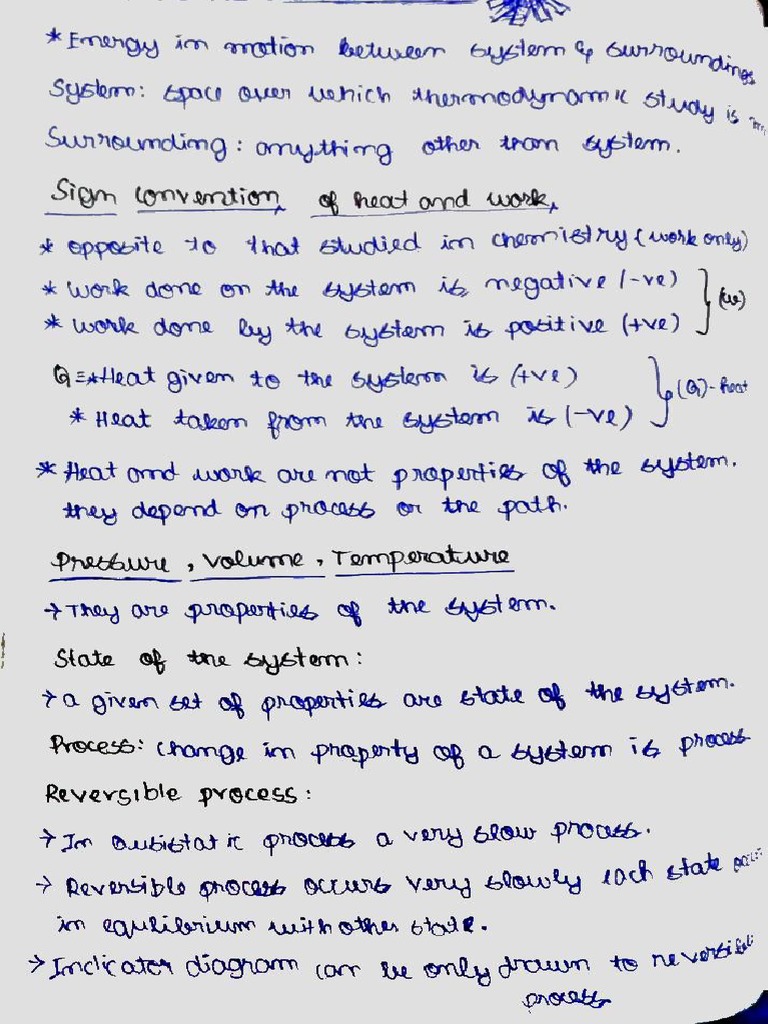 * Energy in motion between system & surroundings
System: space over which thermodynamic study is
Surrounding: anything other than system.
Sign convention, of heat and work,
* opposite to that studied in chemistry (work only)
* work done on the system is negative (-ve)
* work done by the system is positive (+ve) } (w)
Q = * Heat given to the system is (+ve)
* Heat taken from the system is (-ve) } (Q) - heat
* Heat and work are not properties of the system.
they depend on process or the path.
Pressure, Volume, Temperature
→ They are properties of the system.
State of the system:
→ a given set of properties are state of the system.
Process: change in property of a system is process
Reversible process:
→ In quasistatic process a very slow process.
→ Reversible process occurs very slowly each state
in equlibrium with other state.
→ Indicator diagram can be only drawn to reversible
process